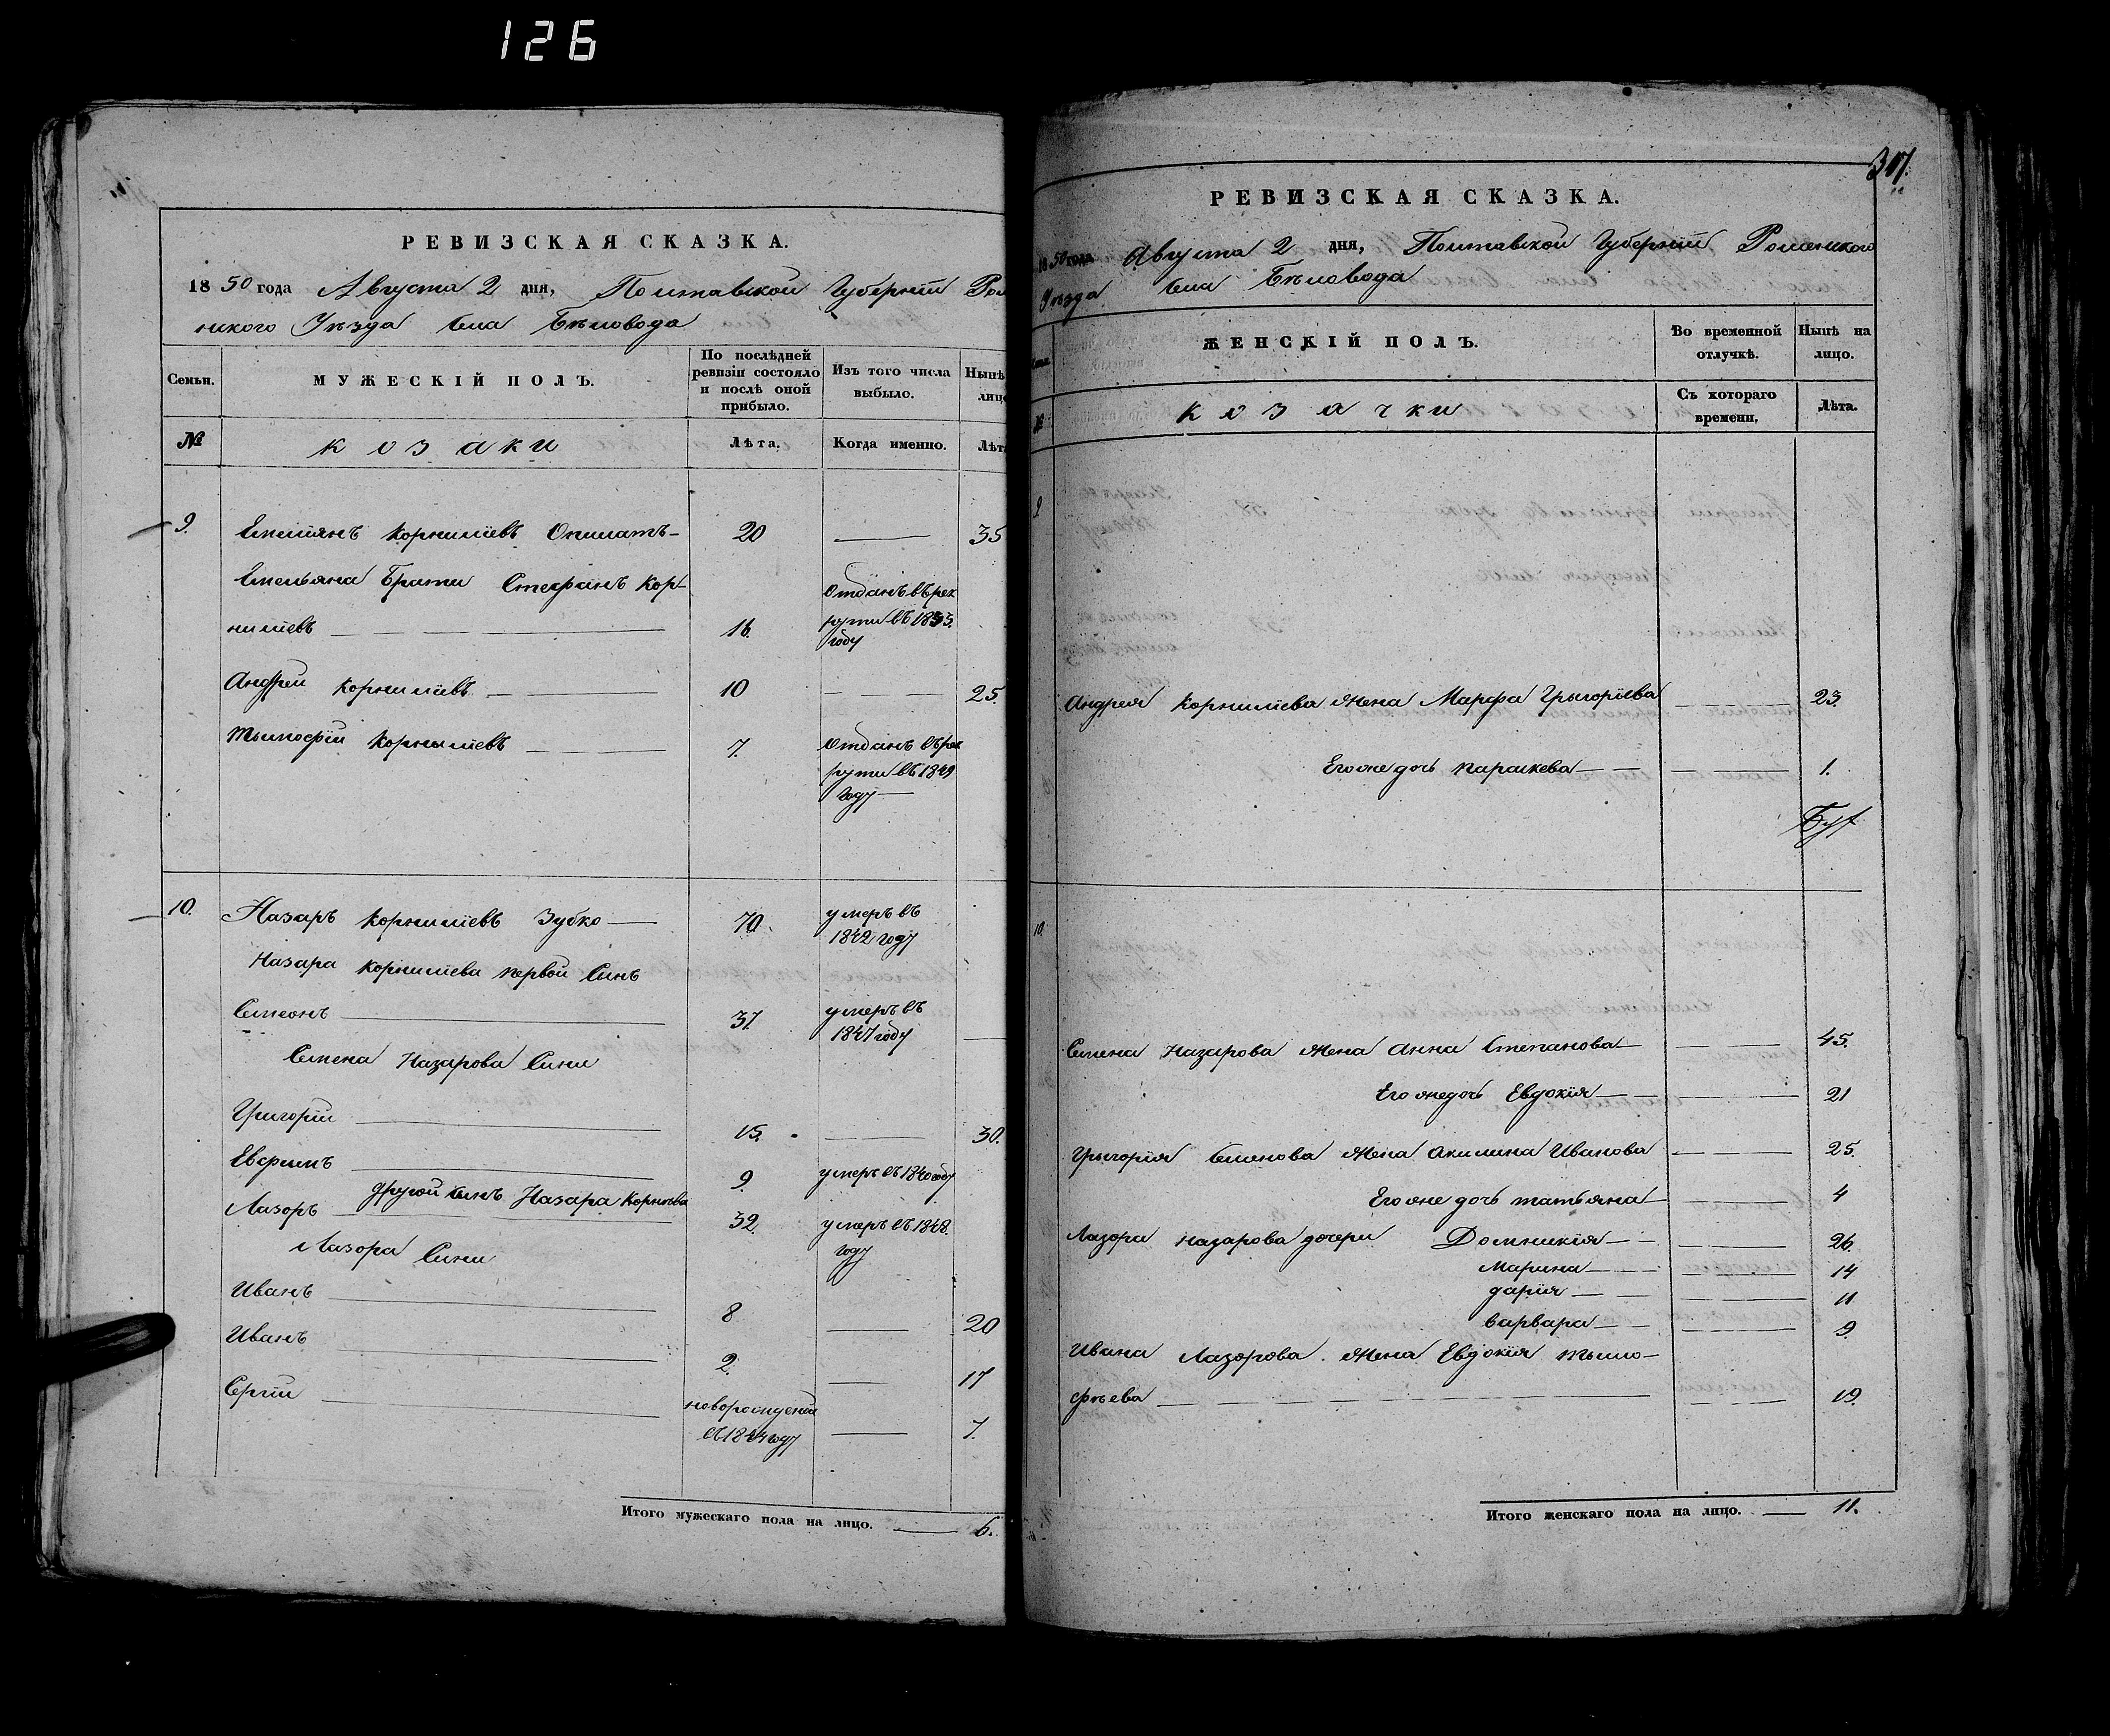 126
РЕВИЗСКАЯ СКАЗКА.
1850 года Августа 2 дня, Полтавской Губернїи Ром
нского Уѣзда Села Бѣловода
Семьи.
МУЖЕСКІЙ ПОЛЪ.
По послѣдней ревизіи состояло и послѣ оной прибыло.
Изъ того числа выбыло.
Нынѣ лицо
№
козаки
Лѣта.
Когда именно.
Лѣт
9. Емелїянъ Корнилїевъ 20 — 35
Емельяна Брати Стефанъ Кор-
нилїевъ 16. отданъ въ рек
рути въ 1833.
году
Андрей Корнилїевъ 10 — 25.
Тымофїй Корнылїевъ 7. отданъ въ рек
рути въ 1849
году
10. Назаръ Корнилїевъ Зубко 70. умеръ въ
1842 году
Назара Корнилїева первой Синъ
Симеонъ 37. умеръ въ
1847 году
Семена Назарова Сини
Григорїй 15. — 30.
Евфимъ 9. умеръ въ 1840 году
другой синъ Назара Корнилїева
Лазоръ 32. умеръ въ 1848.
году
Лазора Сини
Иванъ 8 — 20
Иванъ 2. — 17
Сергїй новорожденїй
въ 1844 году — 7.
Итого мужескаго пола на лицо. — 6.
317.
РЕВИЗСКАЯ СКАЗКА.
1850 года Августа 2 дня, Полтавской Губернїи Роменского
Уѣзда Села Бѣловода
ЖЕНСКІЙ ПОЛЪ.
Во временной отлучкѣ.
Нынѣ на лицо.
№
козачки
Съ котораго времени.
Лѣта.
9
Андрея Корнилїева жена Марфа Грыгорїева — 23.
Его же дочь Параскева — 1.
10.
Семена Назарова жена Анна Степанова — 45.
Его же дочь Евдокїя — 21
Грыгорїя Семенова жена Акилина Иванова — 25.
Его же дочь Татьяна — 4
Лазора Назарова дочери Домникїя — 26.
Марина — 14
Дарїя — 11
Варвара — 9.
Ивана Лазорова жена Евдокїя Тымо-
фѣева — 19.
Итого женскаго пола на лицо. — 11.